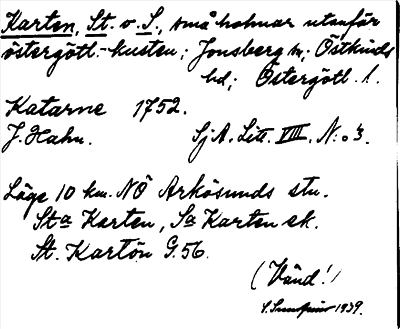 Karten, St. o S., små holmar utanför
östergötl.-kusten; Jonsberg sn, Östkinds
hd; Östergötl. l.
Katarne 1752.
J. Hahn. SjA. Litt. VIII. N:o 3.
Läge 10 km. NÖ Arkösunds stn.
Sta Karten, Sa Karten ek.
St. Kartön G.56.
(Vänd!)
1939.